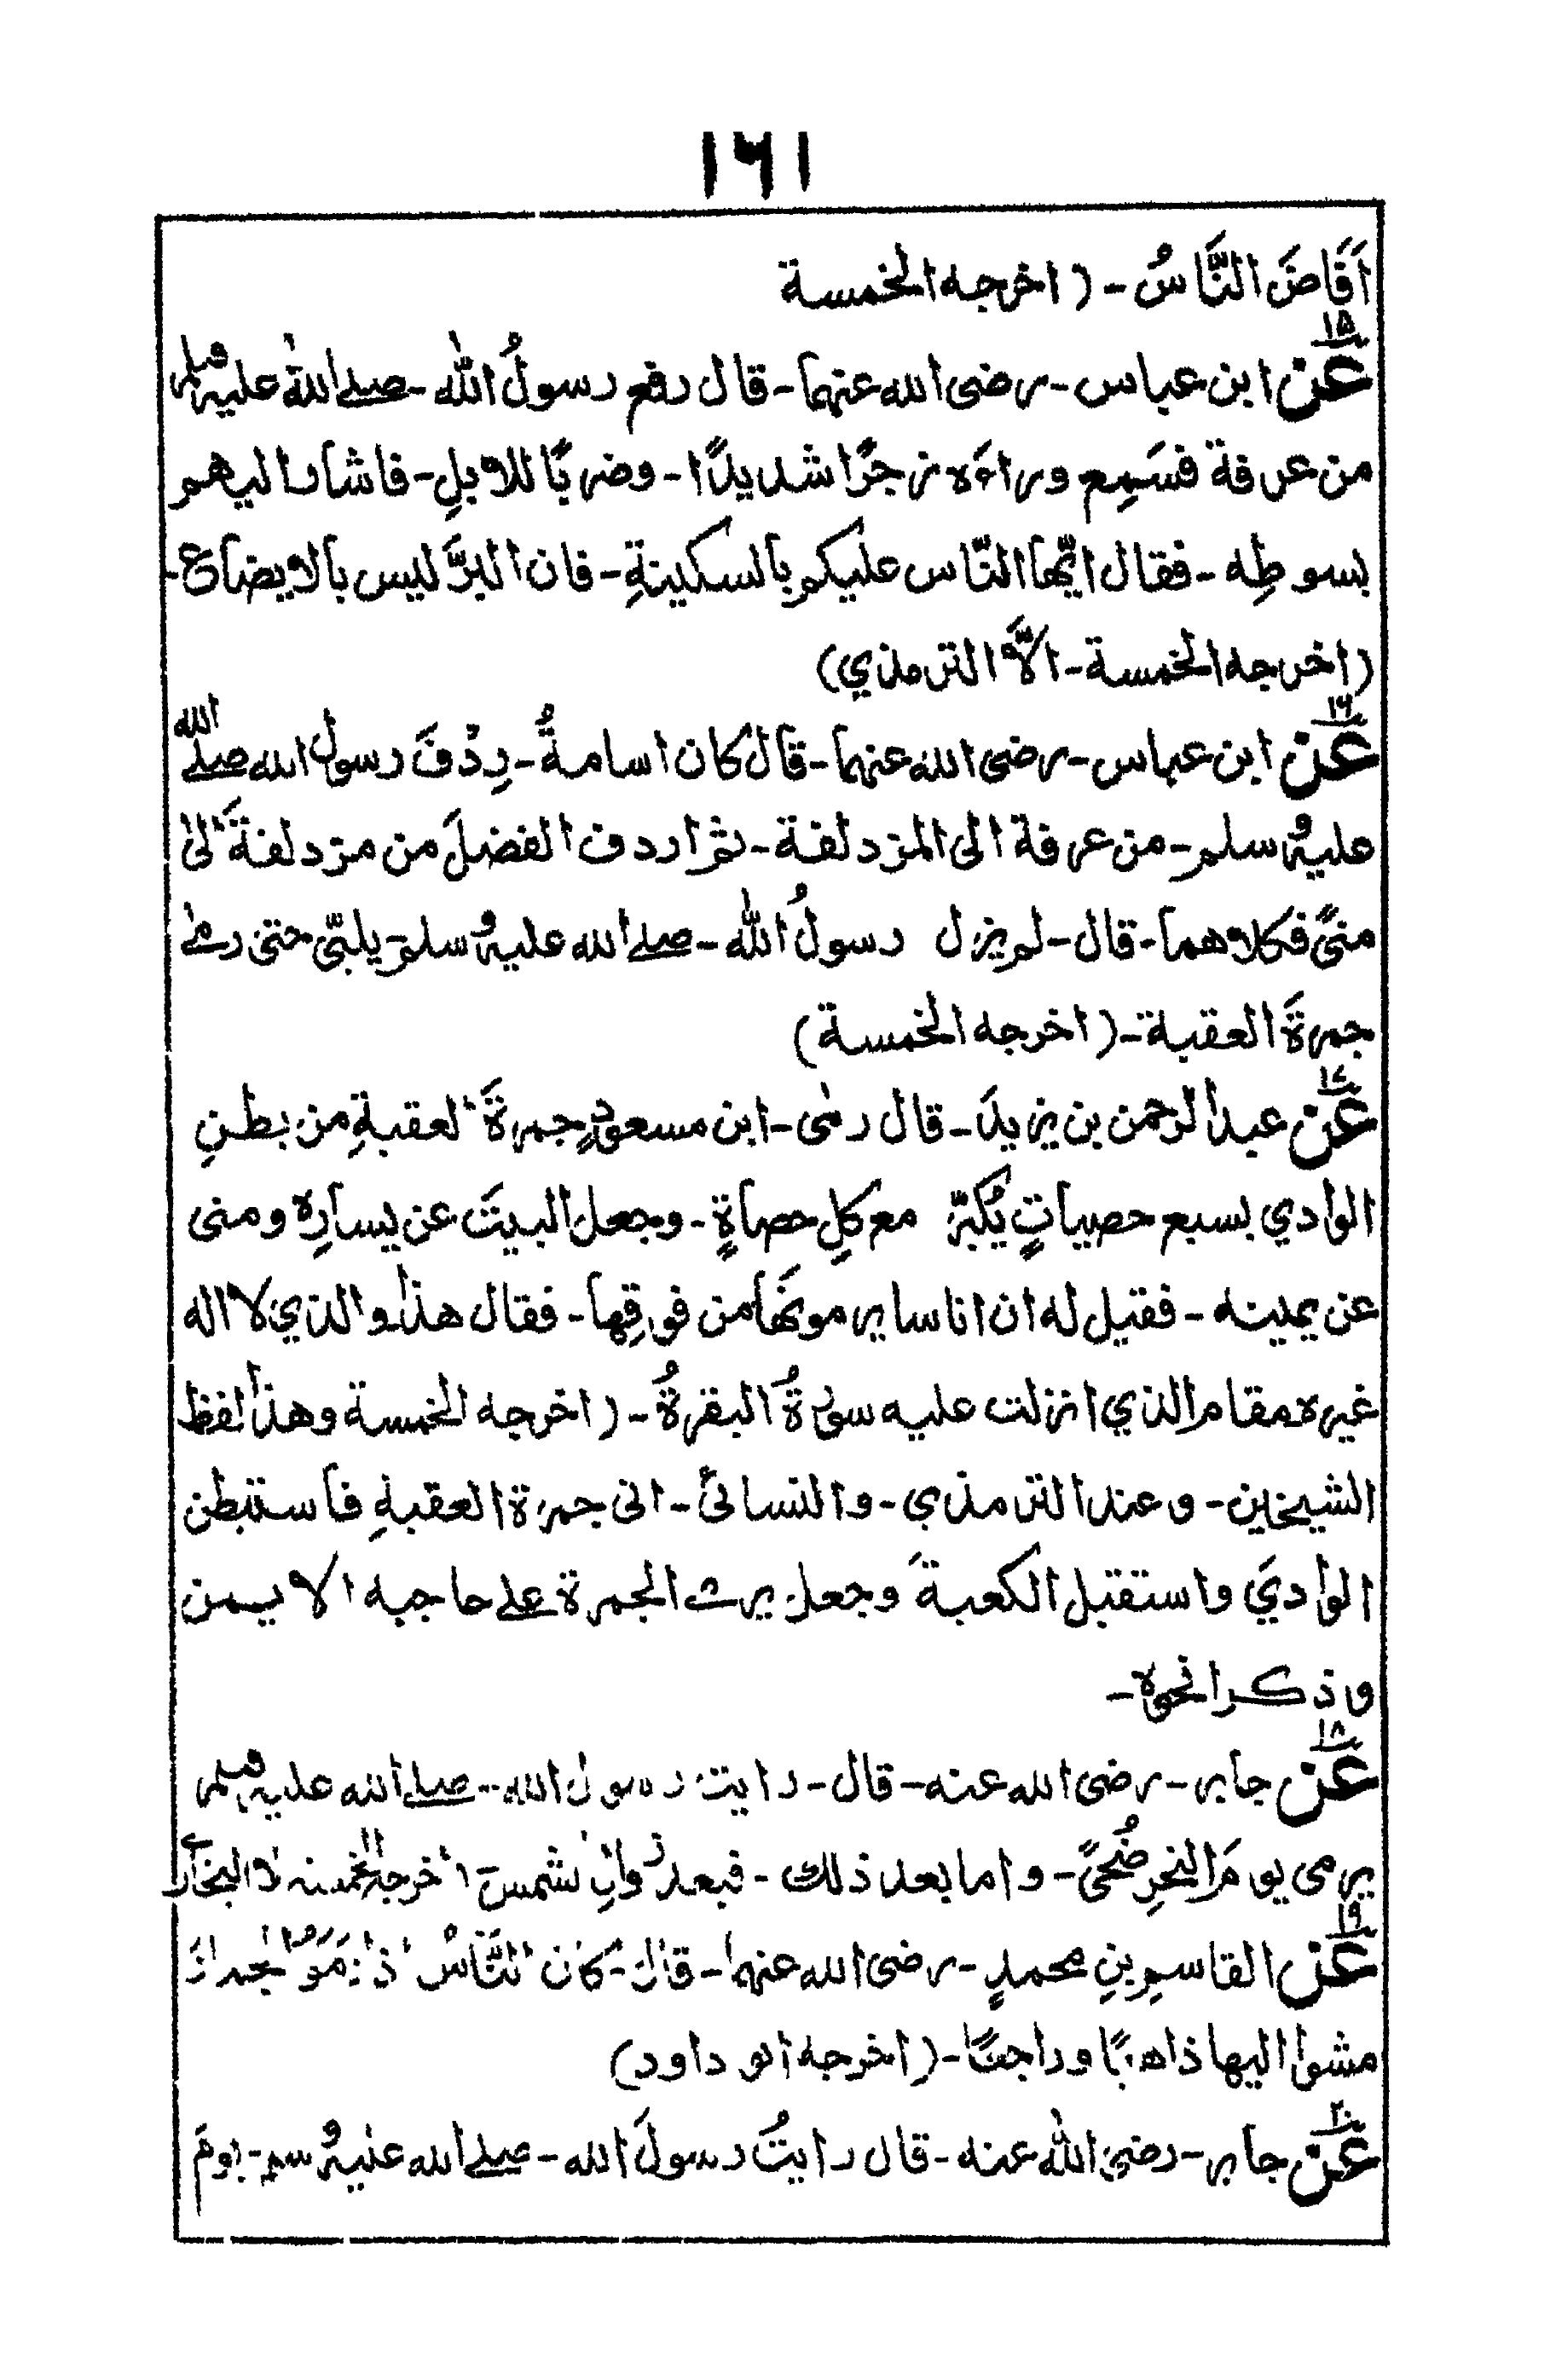 ۱۶۱
اَفَاضَ النَّاسُ - (اخرجه الخمسة
۱۵
عن ابن عباس - رضى الله عنهما - قال رفع رسولُ الله - صلے الله عليه وسلم
من عرفة فسَمِع وراءَه زجرًا شديدًا - وضربًا للابلِ - فاشار اليهم
بسوطِه - فقال ايُّها النّاس عليكم بالسكينةِ - فان البرَّ ليس بالايضاع -
(اخرجه الخمسة - الاَّ الترمذي)
۱۶
عن ابن عباس - رضى الله عنهما - قال كان اسامةُ - رِدْفَ رسول الله صلے الله
عليه وسلم - من عرفة الى المزدلفة - ثم اردف الفضلَ من مزدلفةَ الىٰ
منىً فكلاهما - قال - لم يزل رسولُ الله - صلے الله عليه وسلم - يلبّى حتىٰ رمےٰ
جمرةَ العقبة - (اخرجه الخمسة)
۱۷
عن عبد الرحمن بن يزيدَ - قال رمىٰ - ابن مسعودٍ جمرةَ العقبةِ من بطنِ
الوادي بسبع حصياتٍ يُكبّر مع كلِ حصاةٍ - وجعل البيتَ عن يسارِه ومنى
عن يمينه - فقيل له ان اناسا يرمونَها من فوقِها - فقال هذا والذي لا اله
غيره مقام الذي انزلت عليه سورةُ البقرةُ - (اخرجه الخمسة وهذا لفظ
الشيخين - وعند الترمذي - والنسائىّ - اتى جمرة العقبةِ فاستبطن
الوادىَ واستقبل الكعبةَ وجعل يرمے الجمرة علے حاجبه الايمن
وذكر انحوه -
۱۸
عن جابر - رضى الله عنه - قال - رايت رسول الله - صلے الله عليه وسلم
يرمى يومَ النحرِ ضُحىً - واما بعد ذلك - فبعد زوالِ الشمس - اخرجه الخمسة الا البخارے
۱۹
عن القاسمِ بنِ محمدٍ - رضى الله عنهما - قال - كان النَّاسُ اذا رَمَوُا الجمارَ
مشوا اليها ذاهبًا وراجعًا - (اخرجه ابو داود)
۲۰
عن جابر - رضى الله عنه - قال رايتُ رسولَ الله - صلے الله عليه وسلم - يومَ